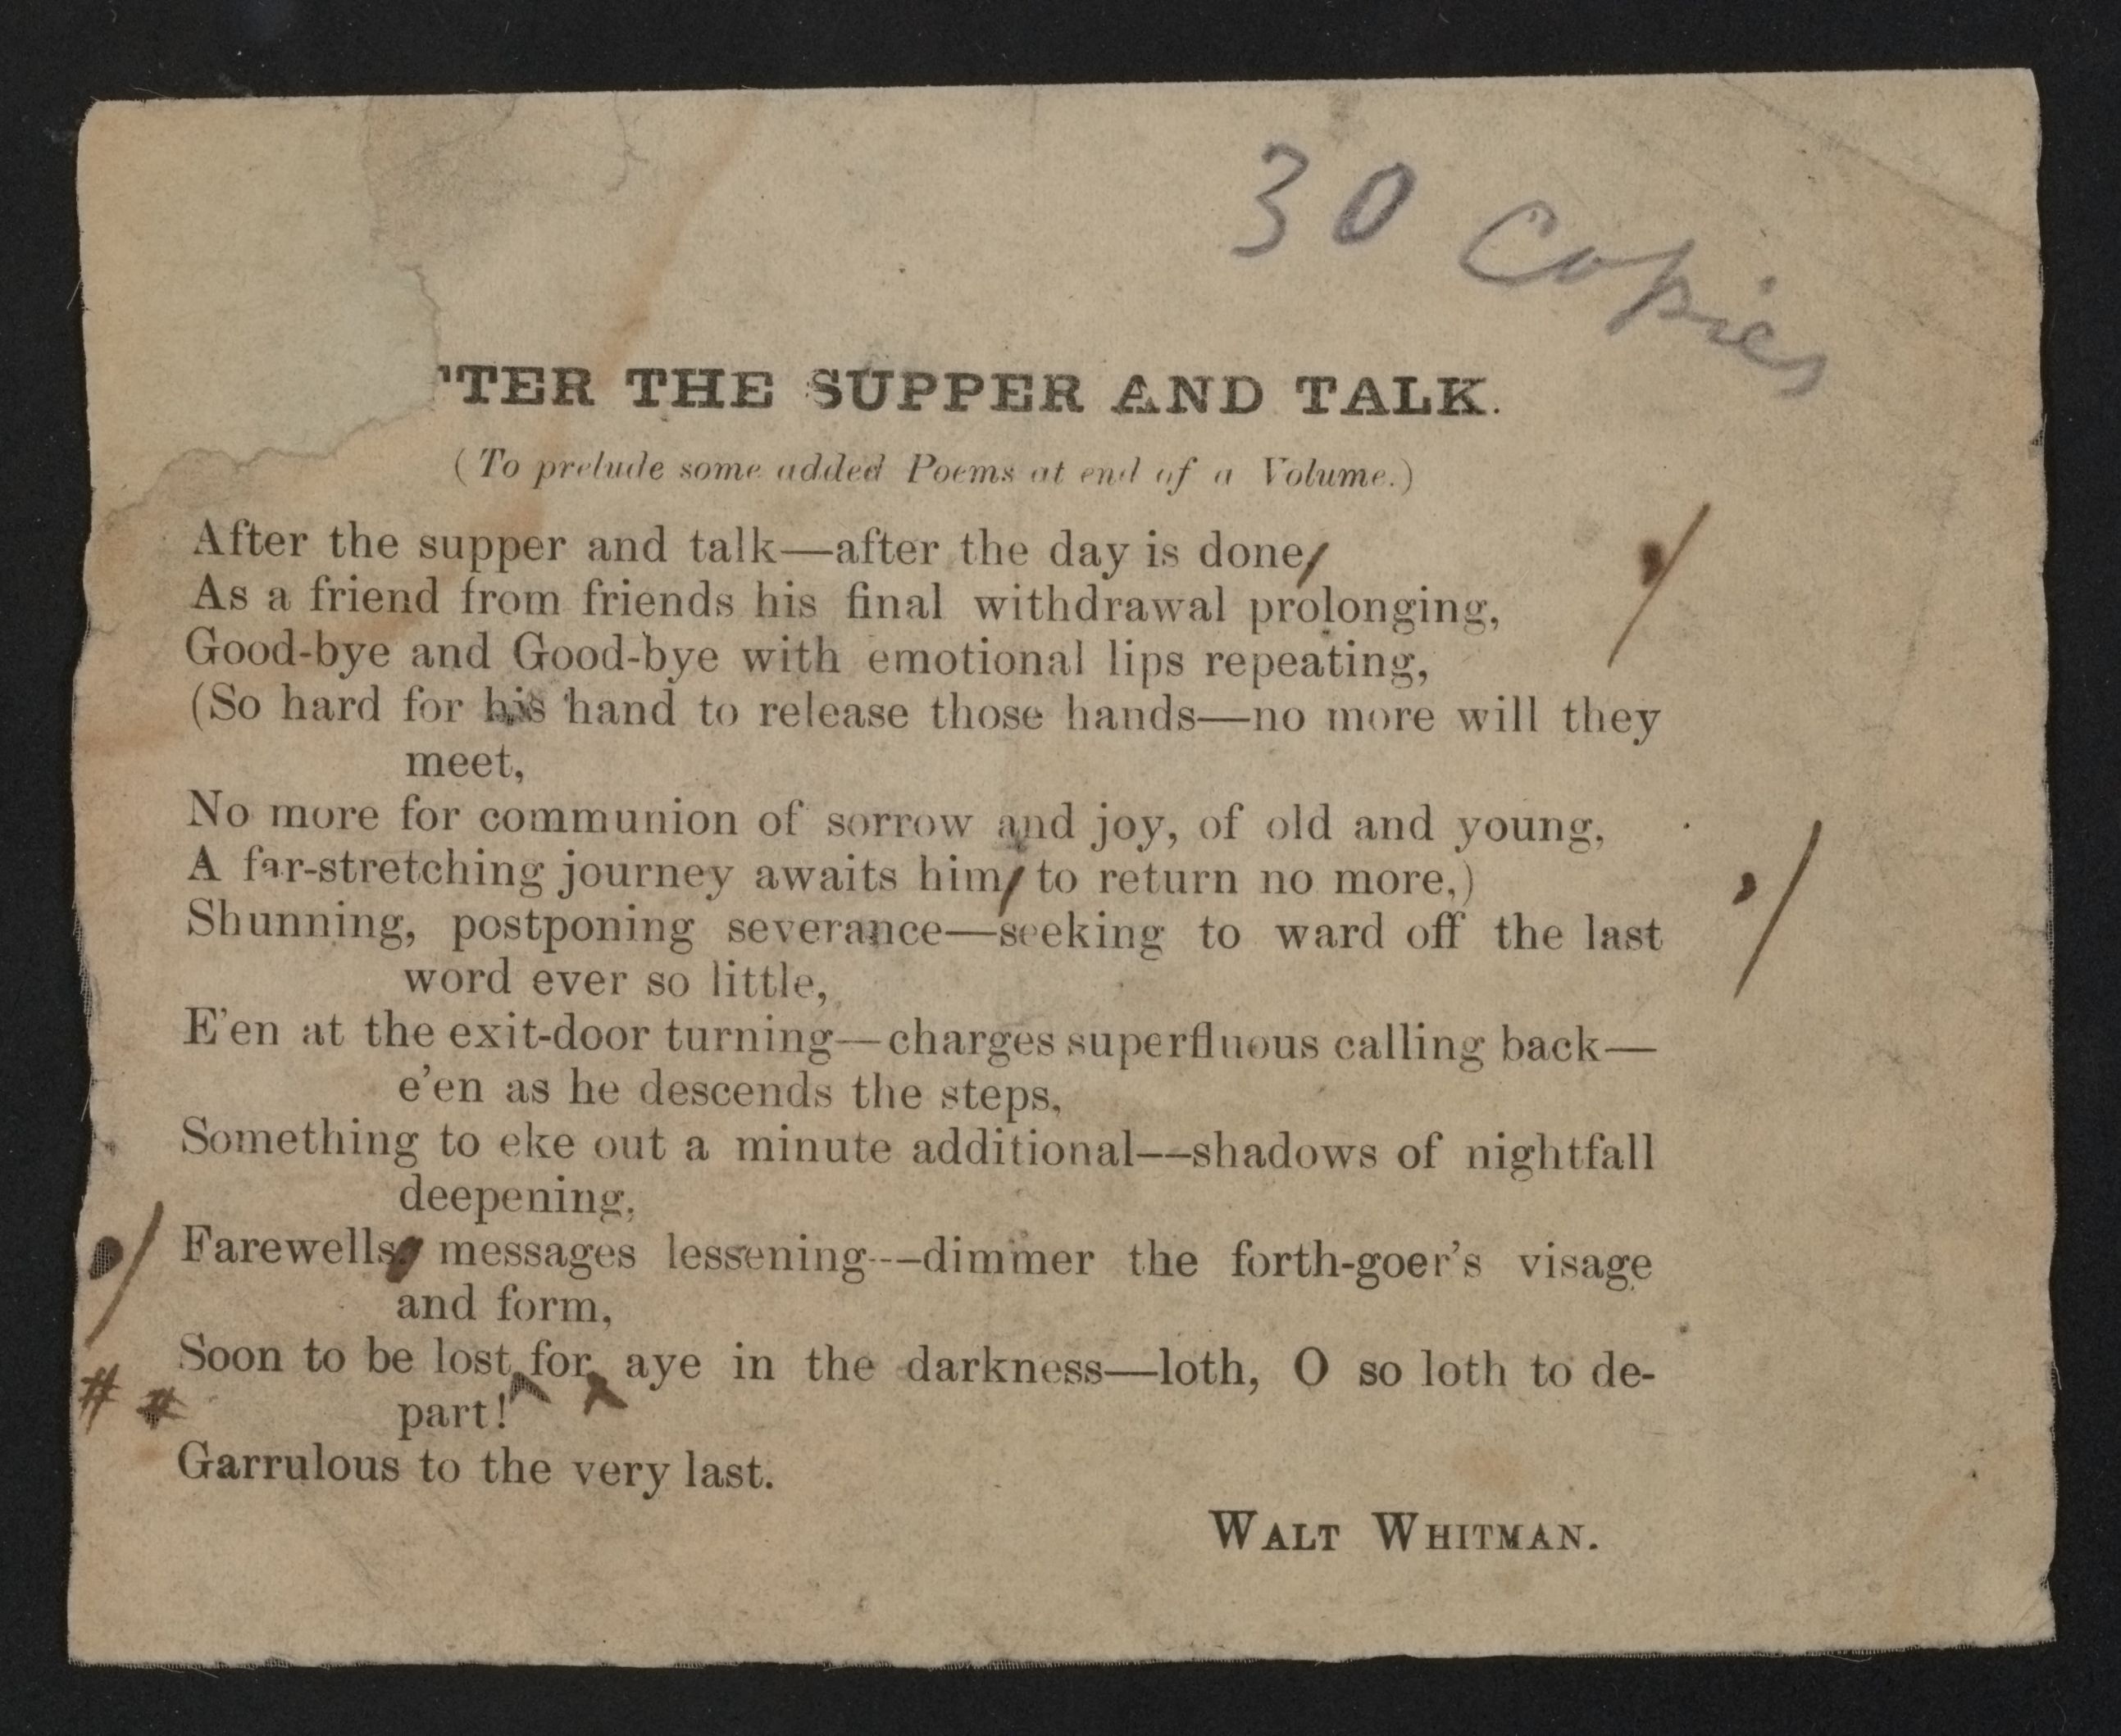 30 Copies
TER THE SUPPER AND TALK.
(To prelude some added Poems at end of a Volume.)
After the supper and talk—after the day is done,
As a friend from friends his final withdrawal prolonging,
Good-bye and Good-bye with emotional lips repeating,
(So hard for his hand to release those hands—no more will they
meet,
No more for communion of sorrow and joy, of old and young,
A far-stretching journey awaits him, to return no more,)
Shunning, postponing severance—seeking to ward off the last
word ever so little,
E'en at the exit-door turning—charges superfluous calling back—
e'en as he descends the steps,
Something to eke out a minute additional—shadows of nightfall
deepening,
Farewells, messages lessening—dimmer the forth-goer's visage
and form,
Soon to be lost for aye in the darkness—loth, O so loth to de-
part!
# #
Garrulous to the very last.
WALT WHITMAN.